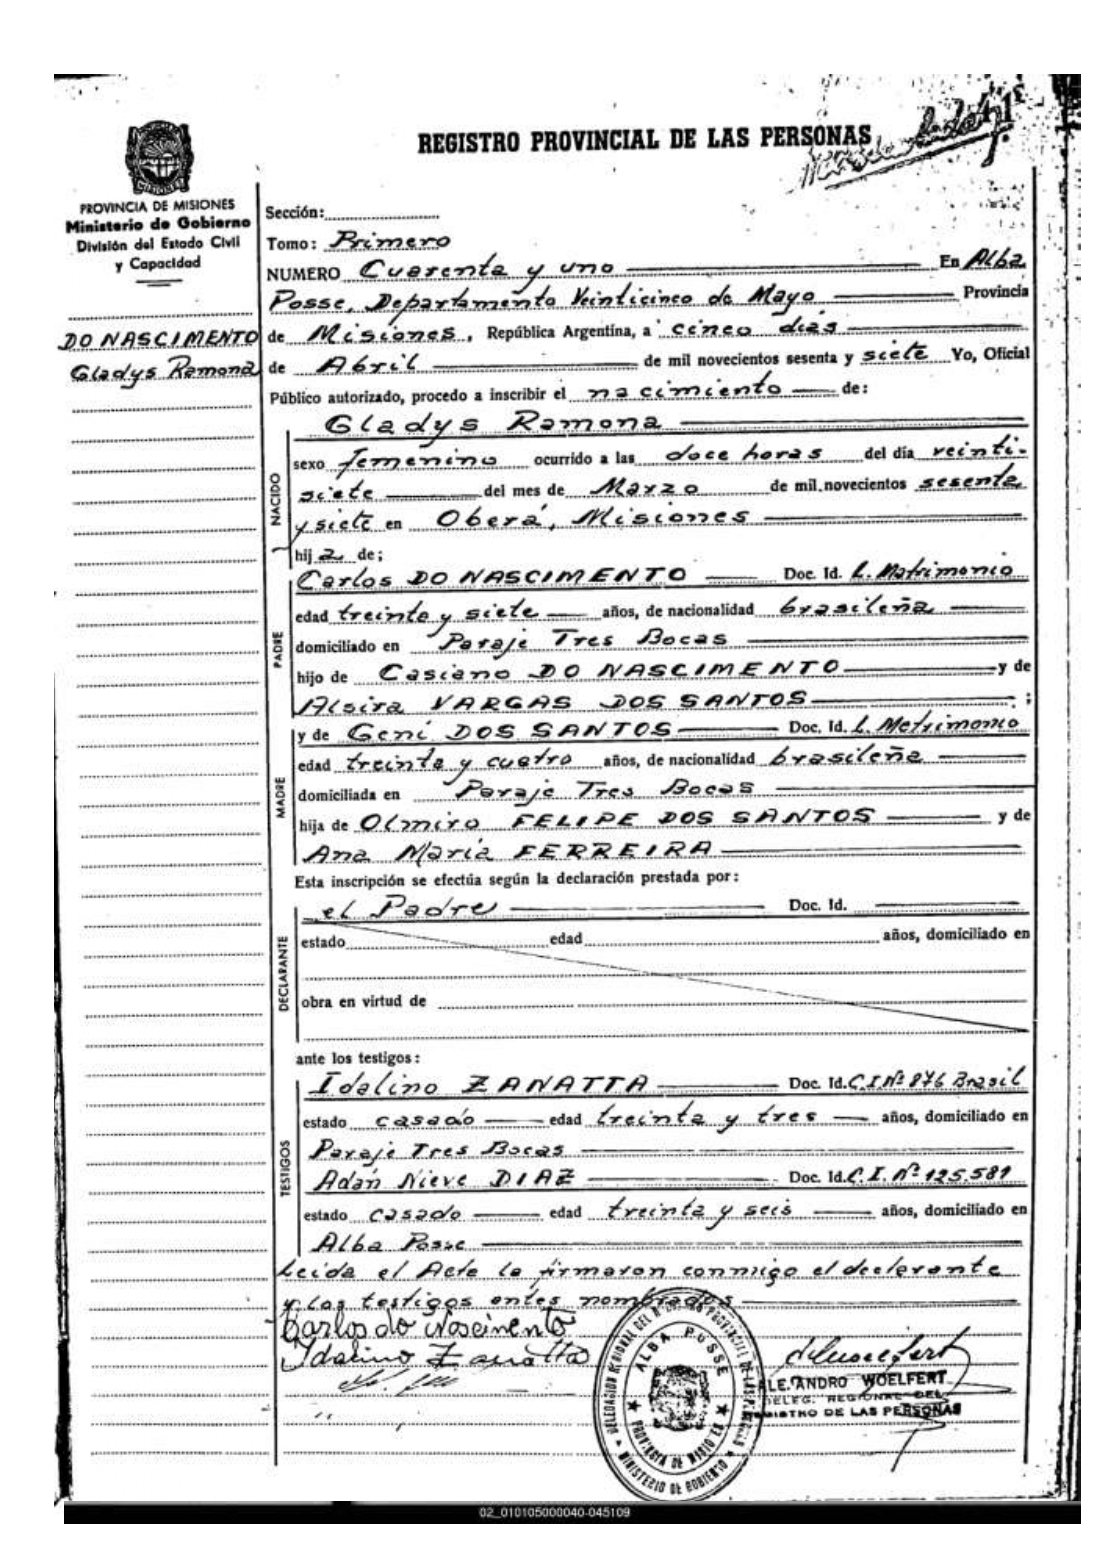 REGISTRO PROVINCIAL DE LAS PERSONAS
PROVINCIA DE MISIONES
Ministerio de Gobierno
División del Estado Civil
y Capacidad
DO NASCIMENTO
Gladys Ramona
Sección:
Tomo: Primero
NUMERO Cuarenta y uno En Alba
Posse, Departamento Veinticinco de Mayo Provincia
de Misiones, República Argentina, a cinco dias
de Abril de mil novecientos sesenta y siete Yo, Oficial
Público autorizado, procedo a inscribir el nacimiento de:
NACIDO
Gladys Ramona
sexo femenino ocurrido a las doce horas del día veinti-
siete del mes de Marzo de mil novecientos sesenta
y siete en Oberá, Misiones
hij a de;
PADRE
Carlos DO NASCIMENTO Doc. Id. L. Matrimonio
edad treinta y siete años, de nacionalidad brasileña
domiciliado en Paraje Tres Bocas
hijo de Casiano DO NASCIMENTO y de
Alsira VARGAS DOS SANTOS ;
MADRE
y de Geni DOS SANTOS Doc. Id. L. Matrimonio
edad treinta y cuatro años, de nacionalidad brasileña
domiciliada en Paraje Tres Bocas
hija de Olmiro FELIPE DOS SANTOS y de
Ana Maria FERREIRA
Esta inscripción se efectúa según la declaración prestada por:
DECLARANTE
el Padre Doc. Id.
estado edad años, domiciliado en
obra en virtud de
ante los testigos:
TESTIGOS
Idalino ZANATTA Doc. Id. C.I.Nº 876 Brasil
estado casado edad treinta y tres años, domiciliado en
Paraje Tres Bocas
Adán Nieve DIAZ Doc. Id. C.I. Nº 125.581
estado casado edad treinta y seis años, domiciliado en
Alba Posse
Leida el Acta la firmaron conmigo el declarante
y los testigos antes nombrados
Carlos do Nascimento
Idalino Zanatta
ALEJANDRO WOELFERT
DELEG. REGIONAL DEL
REGISTRO DE LAS PERSONAS
ALBA POSSE
PROVINCIA DE MISIONES
MINISTERIO DE GOBIERNO
02_010105000040-045109